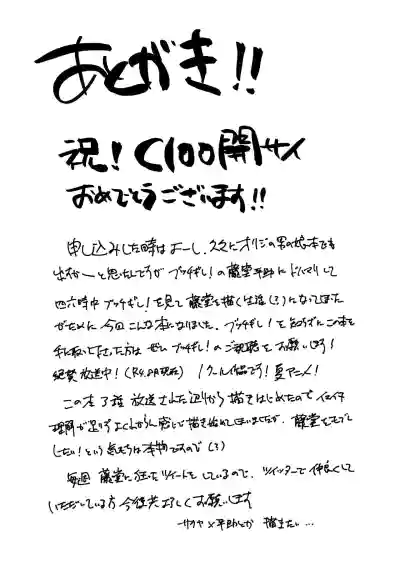 あとがき!!
祝! C100開サイ
おめでとうございます!!
申し込みした時はよーし、久々にオリジの男の娘本でも
出すかーと思ったんですが ブッチギレ!の藤堂平助にドハマリして
四六時中ブッチギレ!を見て 藤堂を描く生活(?)になってしまった
がために今回こんな本になりました。ブッチギレ!を知らずにこの本を
手に取って下さった方は ぜひブッチギレ!のご視聴を お願いします!
絶賛放送中!(R4.8月現在) 1クール作品です!夏アニメ!
この本 3話 放送された辺りから描きはじめたので イマイチ
理解が足りずよくわからん感じで描き始めてしまいましたが、藤堂をモブ
したい!という気もちは本物ですので(?)
毎週 藤堂に狂ったツイートをしているので、ツイッターで仲良くして
いただいている方 今後共よろしくお願いします
サカヤ×平助とか 描きたい…